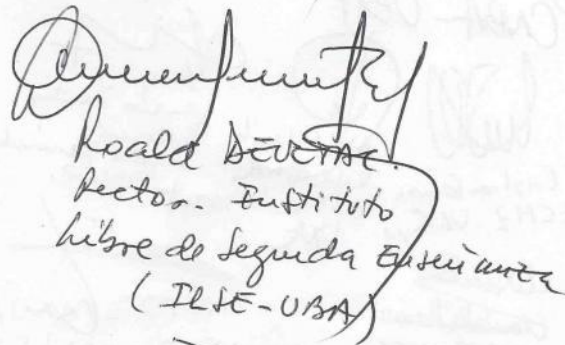 Roald DEVETAC.
Rector. Instituto
Libre de Segunda Enseñanza
(ILSE-UBA)